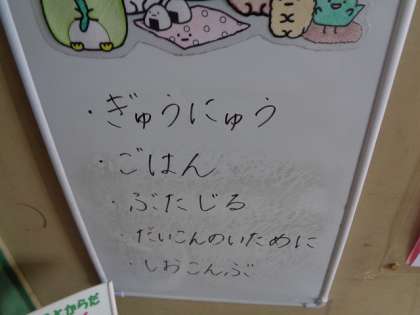 ・ぎゅうにゅう
・ごはん
・ぶたじる
・だいこんのいために
・しおこんぶ
とからだ